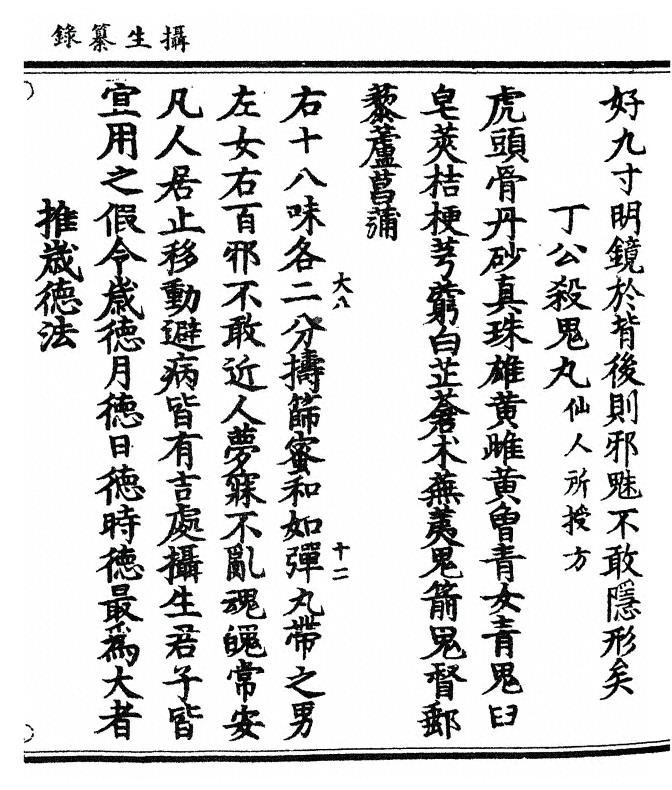 攝生纂錄
好九寸明鏡於背後則邪魅不敢隱形矣
丁公殺鬼丸仙人所授方
虎頭骨丹砂真珠雄黃雌黃曾青女青鬼臼
皂莢桔梗芎藭白芷蒼术蕪荑鬼箭鬼督郵
藜蘆菖蒲
右十八味各二分擣篩蜜和如彈丸帶之男
大八
十二
左女右百邪不敢近人夢寐不亂魂魄常安
凡人居止移動避病皆有吉處攝生君子皆
宜用之假令歲德月德日德時德最為大者
推歲德法